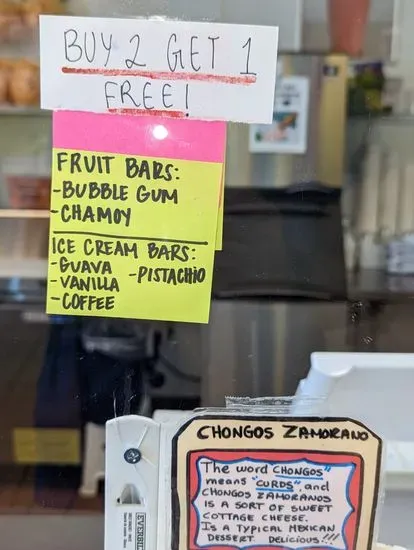 BUY 2 GET 1
FREE!
FRUIT BARS:
-BUBBLE GUM
-CHAMOY
ICE CREAM BARS:
-GUAVA -PISTACHIO
-VANILLA
-COFFEE
CHONGOS ZAMORANO
The word CHONGOS"
means "CURDS", and
CHONGOS ZAMORANOS
IS A SORT OF SWEET
COTTAGE CHEESE.
IS A TYPICAL MEXICAN
DESSERT. DELICIOUS!!!